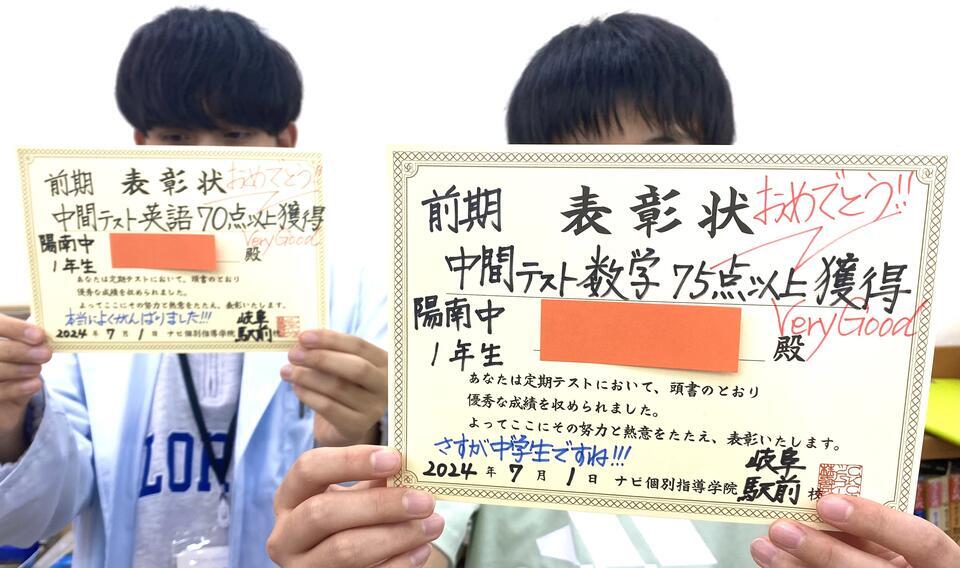 前期 表彰状 おめでとう!!
中間テスト英語 70点以上獲得
陽南中 殿 Very Good
1年生
あなたは定期テストにおいて、頭書のとおり
優秀な成績を収められました。
よってここにその努力と熱意をたたえ、表彰いたします。
本当によくがんばりました!!!
2024年7月1日 ナビ個別指導学院 岐阜駅前校
LOR
前期 表彰状 おめでとう!!
中間テスト数学 75点以上獲得
陽南中 Very Good
1年生 殿
あなたは定期テストにおいて、頭書のとおり
優秀な成績を収められました。
よってここにその努力と熱意をたたえ、表彰いたします。
さすが中学生ですね!!!
2024年7月1日 ナビ個別指導学院 岐阜駅前校